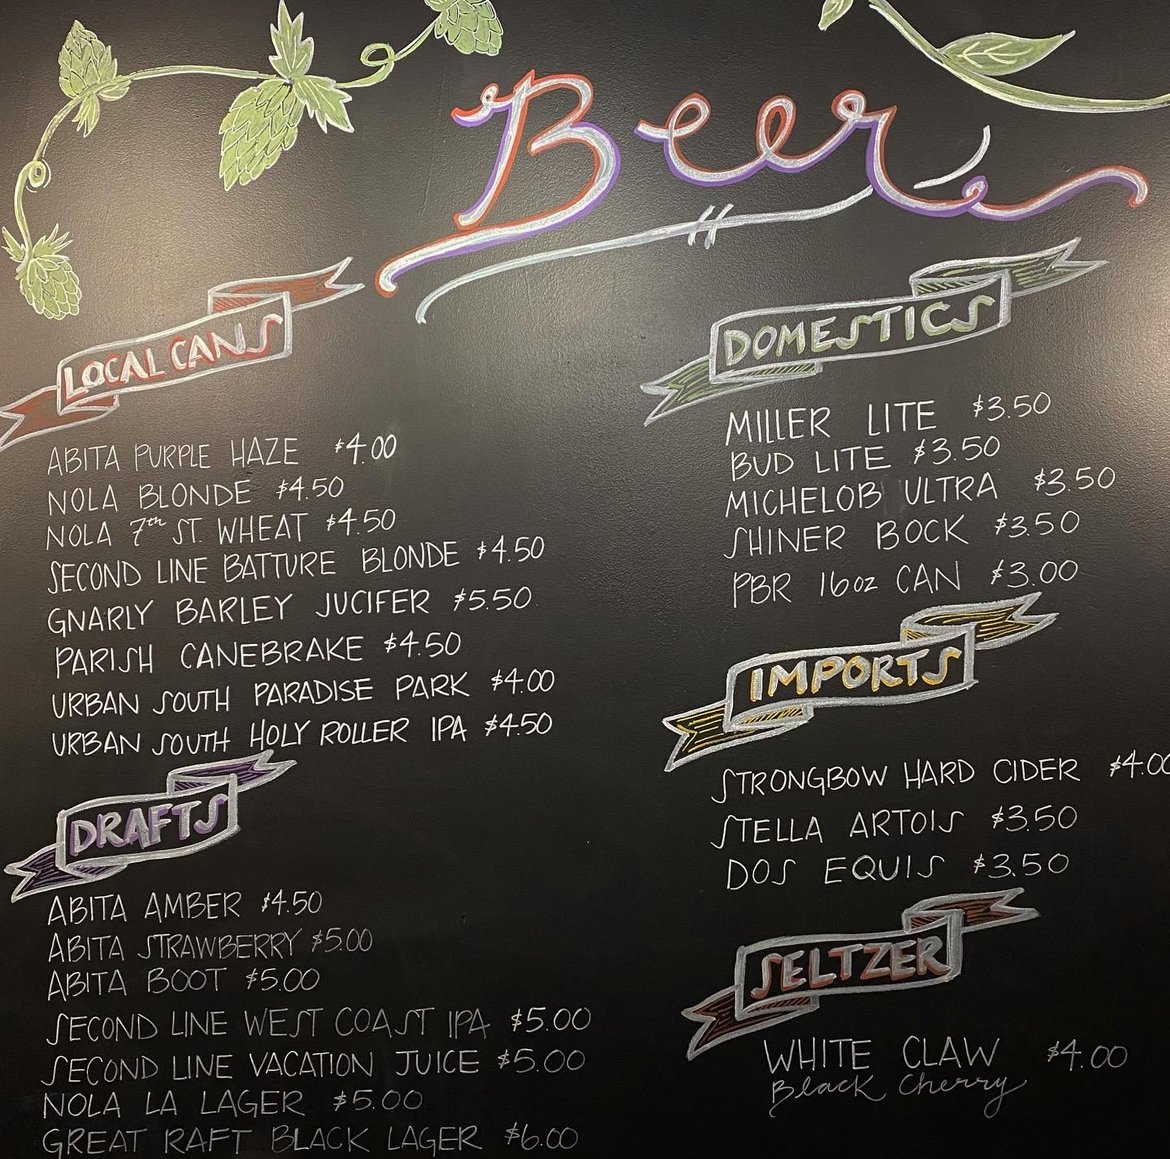 Beer
LOCAL CANS
ABITA PURPLE HAZE $4.00
NOLA BLONDE $4.50
NOLA 7th ST. WHEAT $4.50
SECOND LINE BATTURE BLONDE $4.50
GNARLY BARLEY JUCIFER $5.50
PARISH CANEBRAKE $4.50
URBAN SOUTH PARADISE PARK $4.00
URBAN SOUTH HOLY ROLLER IPA $4.50
DRAFTS
ABITA AMBER $4.50
ABITA STRAWBERRY $5.00
ABITA BOOT $5.00
SECOND LINE WEST COAST IPA $5.00
SECOND LINE VACATION JUICE $5.00
NOLA LA LAGER $5.00
GREAT RAFT BLACK LAGER $6.00
DOMESTICS
MILLER LITE $3.50
BUD LITE $3.50
MICHELOB ULTRA $3.50
SHINER BOCK $3.50
PBR 16oz CAN $3.00
IMPORTS
STRONGBOW HARD CIDER $4.00
STELLA ARTOIS $3.50
DOS EQUIS $3.50
SELTZER
WHITE CLAW $4.00
Black Cherry